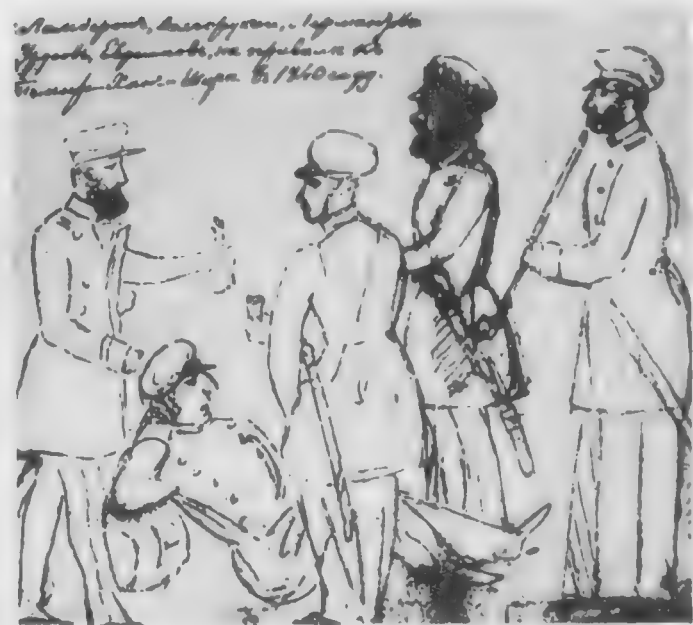 Ламбертъ, Долгорукий, Лермонтовъ
Урусовъ, Евреиновъ, на привалѣ
Темиръ-Ханъ-Шурѣ въ 1840 году.